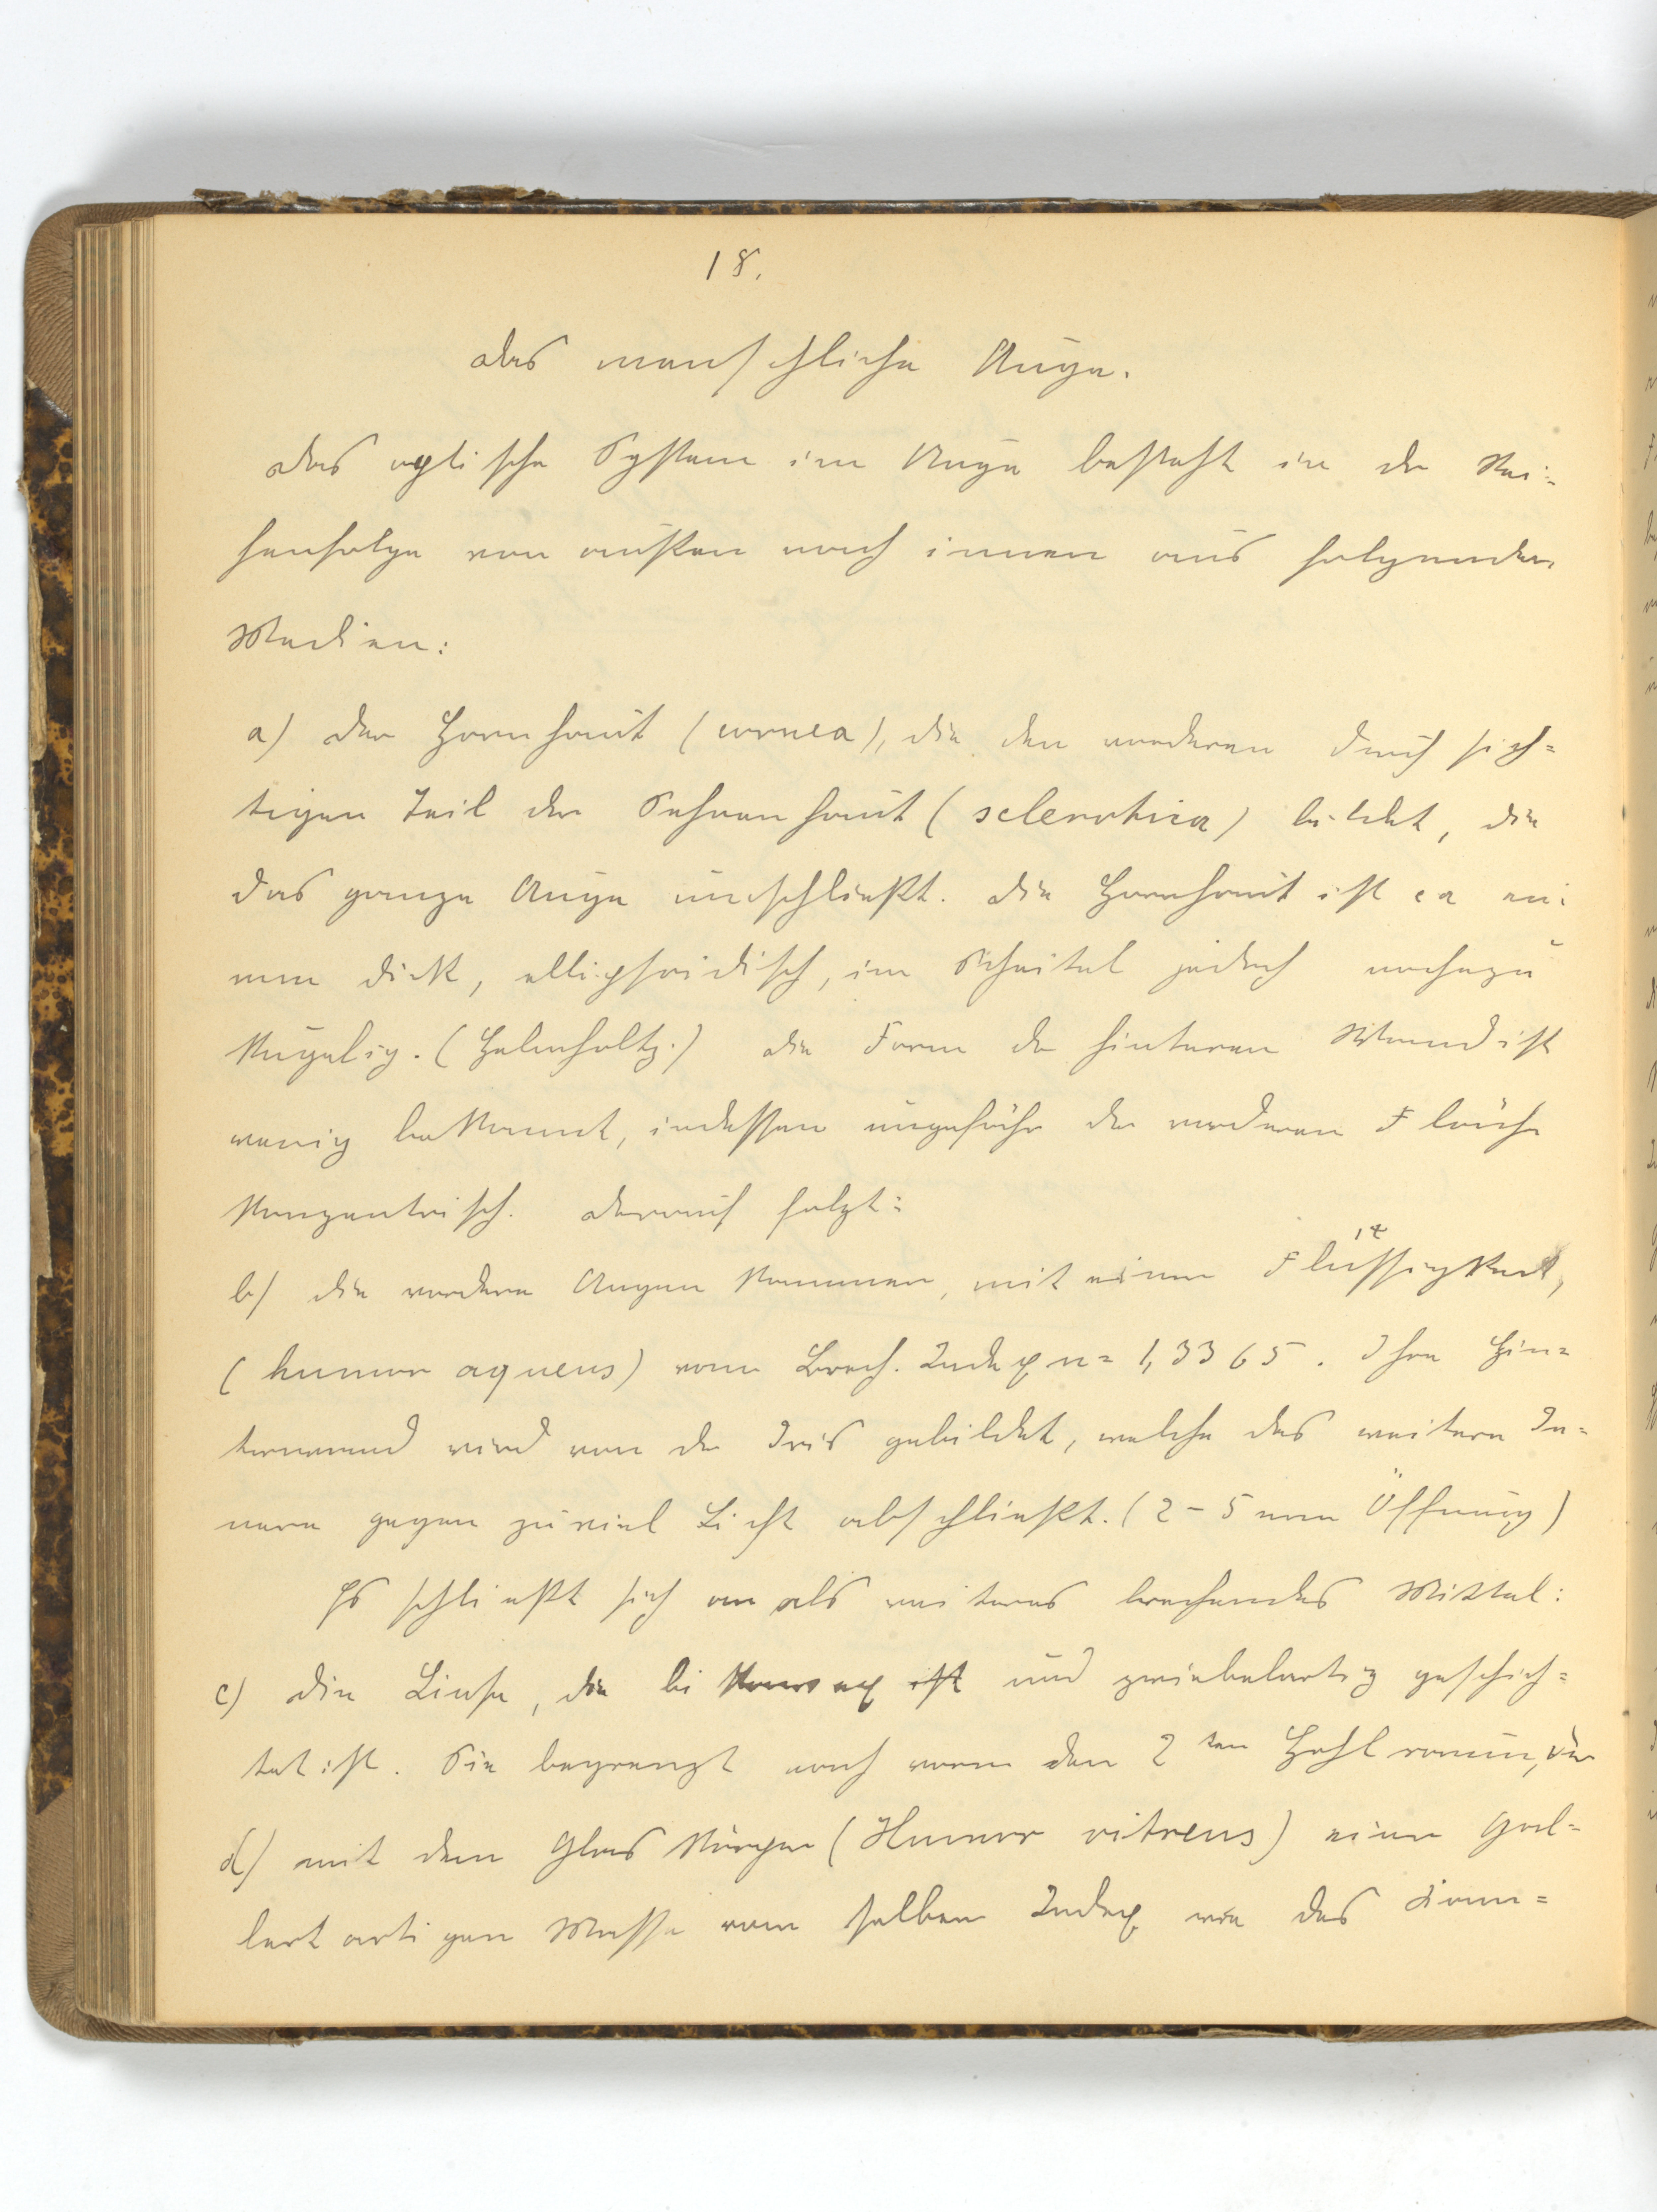 18.
Das menschliche Auge.
Das optische System im Auge besteht in der Rei=
henfolge von außen nach innen aus folgenden
Medien:
a) der Hornhaut (cornea), die den vorderen durchsich=
tigen Teil der Sehnenhaut (sclerotica) bildet, die
das ganze Auge umschließt. Die Hornhaut ist ca ein
mm dick, ellipsoidisch, im Scheitel jedoch nahezu
kugelig. (Helmholtz.) Die Form der hinteren Wand ist
wenig bekannt, indessen ungefähr der vorderen Fläche
konzentrisch. Darauf folgt:
b) die vordere Augenkammer, mit einer Flüssigkeit,
(humor aqueus) vom Brech. Index n = 1,3365. Ihre Hin=
terwand wird von der Iris gebildet, welche das weitere In=
nere gegen zuviel Licht abschließt. (2 - 5 mm Öffnung)
Es schließt sich an als weiteres brechendes Mittel:
c) die Linse, die bikonvex ist und zwiebelartig geschich=
tet ist. Sie begrenzt nach vorn den 2ten Hohlraum, der
d) mit dem Glaskörper (Humor vitreus) einer gal=
lertartigen Masse vom selben Index wie das Kam=